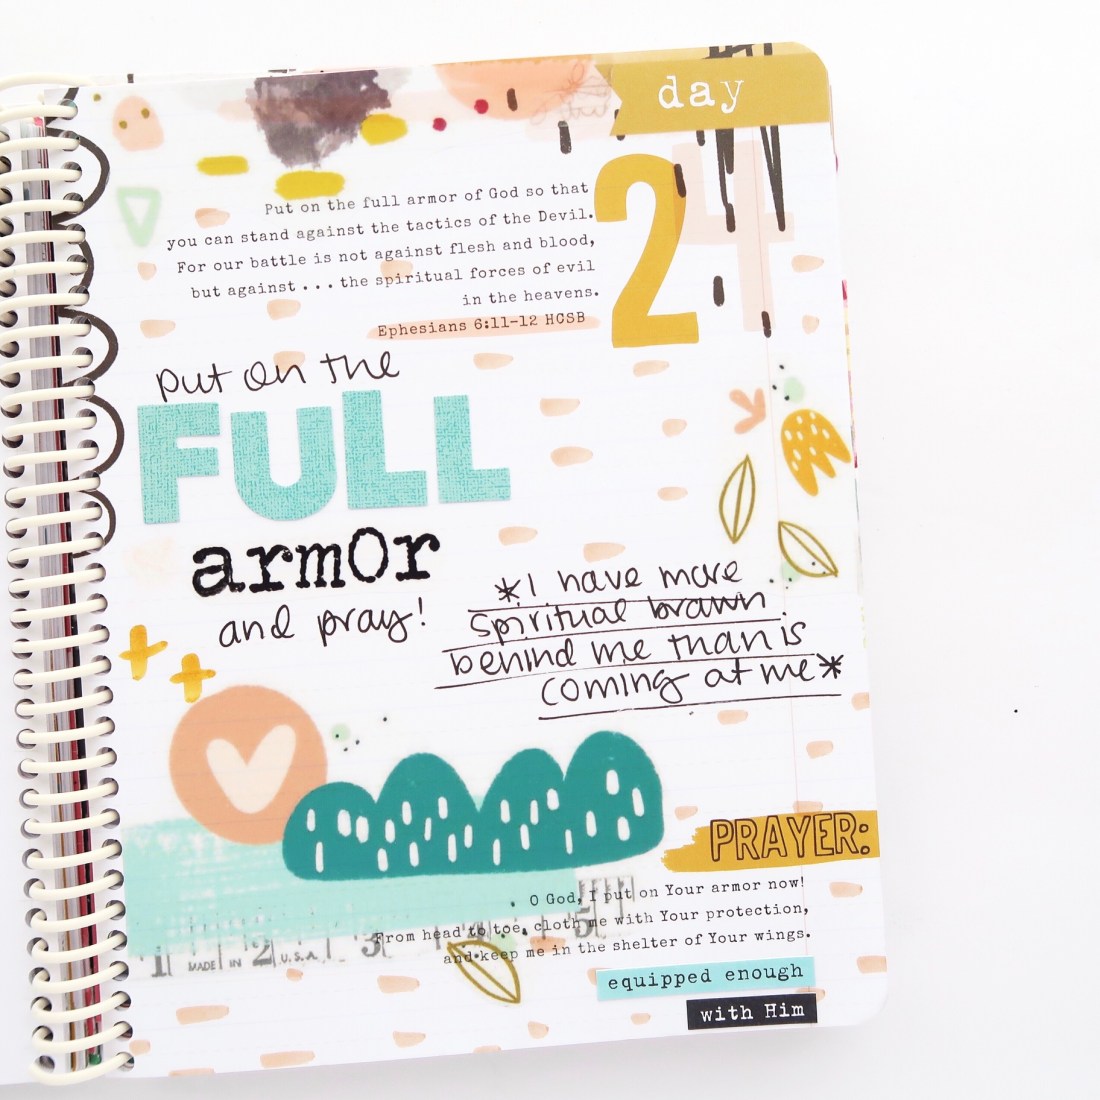 day
24
Put on the full armor of God so that
you can stand against the tactics of the Devil.
For our battle is not against flesh and blood,
but against . . . the spiritual forces of evil
in the heavens.
Ephesians 6:11-12 HCSB
put on the
FULL
armor
and pray!
*I have more
spiritual brawn
behind me than is
coming at me*
PRAYER:
O God, I put on Your armor now!
From head to toe, cloth me with Your protection,
and keep me in the shelter of Your wings.
1 MADE IN 2 U.S.A. 3 5
equipped enough
with Him